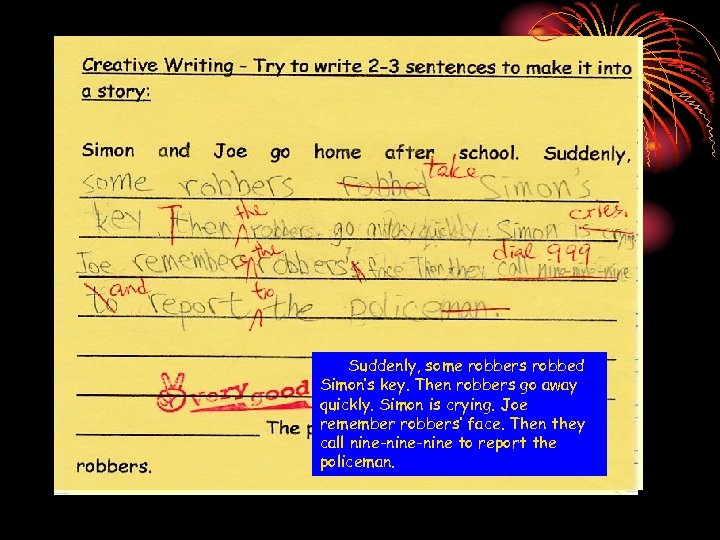 Creative Writing - Try to write 2-3 sentences to make it into
a story:
Simon and Joe go home after school. Suddenly,
take
some robbers robbed Simon's
the cries.
key. Then robbers go away quickly. Simon is crying.
the dial 999
Joe remembers robbers' face Then they call nine-nine-nine
and to
to report the policeman.
very good
The p
robbers.
Suddenly, some robbers robbed
Simon's key. Then robbers go away
quickly. Simon is crying. Joe
remember robbers' face. Then they
call nine-nine-nine to report the
policeman.